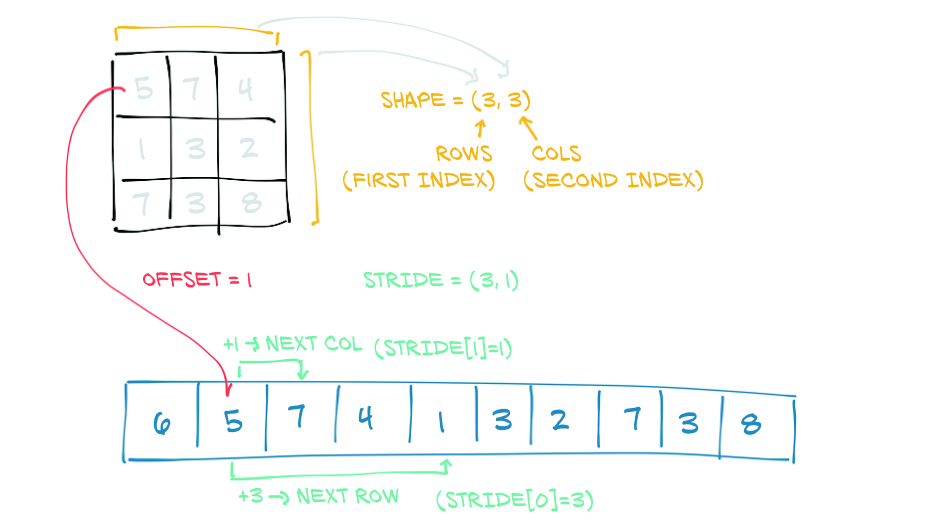 5 7 4
SHAPE = (3, 3)
1 3 2
ROWS COLS
(FIRST INDEX) (SECOND INDEX)
7 3 8
OFFSET = 1
STRIDE = (3, 1)
+1 → NEXT COL (STRIDE[1]=1)
6 5 7 4 1 3 2 7 3 8
+3 → NEXT ROW (STRIDE[0]=3)